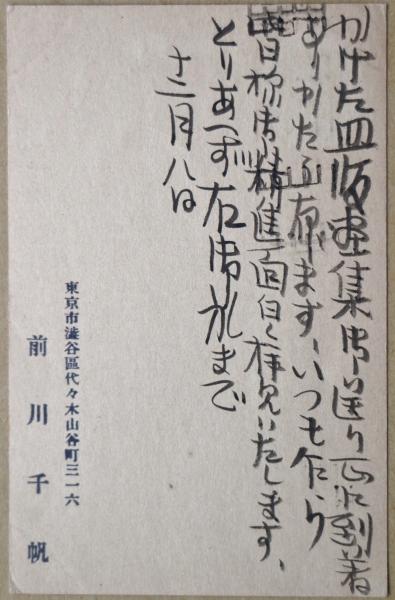 かけた皿版画集御送り正に到着
ありがたふ存じます、いつも乍ら
貴臺様御精進面白く拝見いたします、
とりあへず右御礼まで
十二月八日
東京市澁谷區代々木山谷町三一六
前川千帆